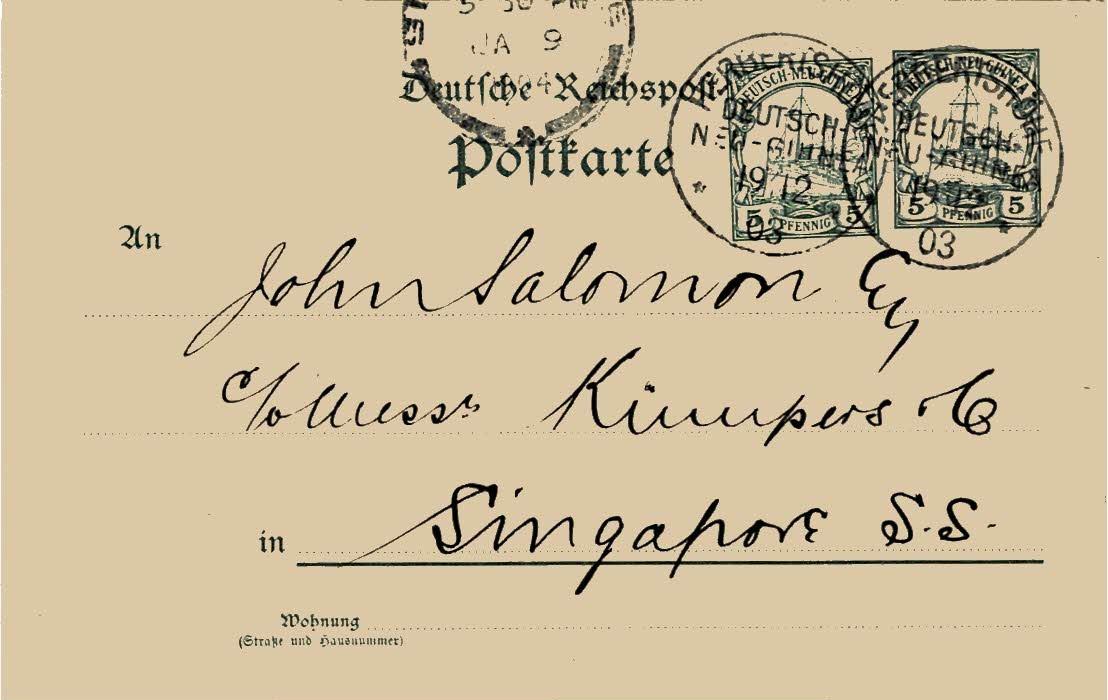 5 30 PM
JA 9
1904
Deutsche Reichspost
Postkarte
HERBERTSHÖHE
DEUTSCH-
NEU-GUINEA
19/12
03
DEUTSCH-NEU-GUINEA
5 PFENNIG 5
HERBERTSHÖHE
DEUTSCH-
NEU-GUINEA
03
DEUTSCH-NEU-GUINEA
5 PFENNIG 5
An
John Salomon Esq
c/o Messrs Kümpers & Co
in Singapore S.S.
Wohnung
(Straße und Hausnummer)